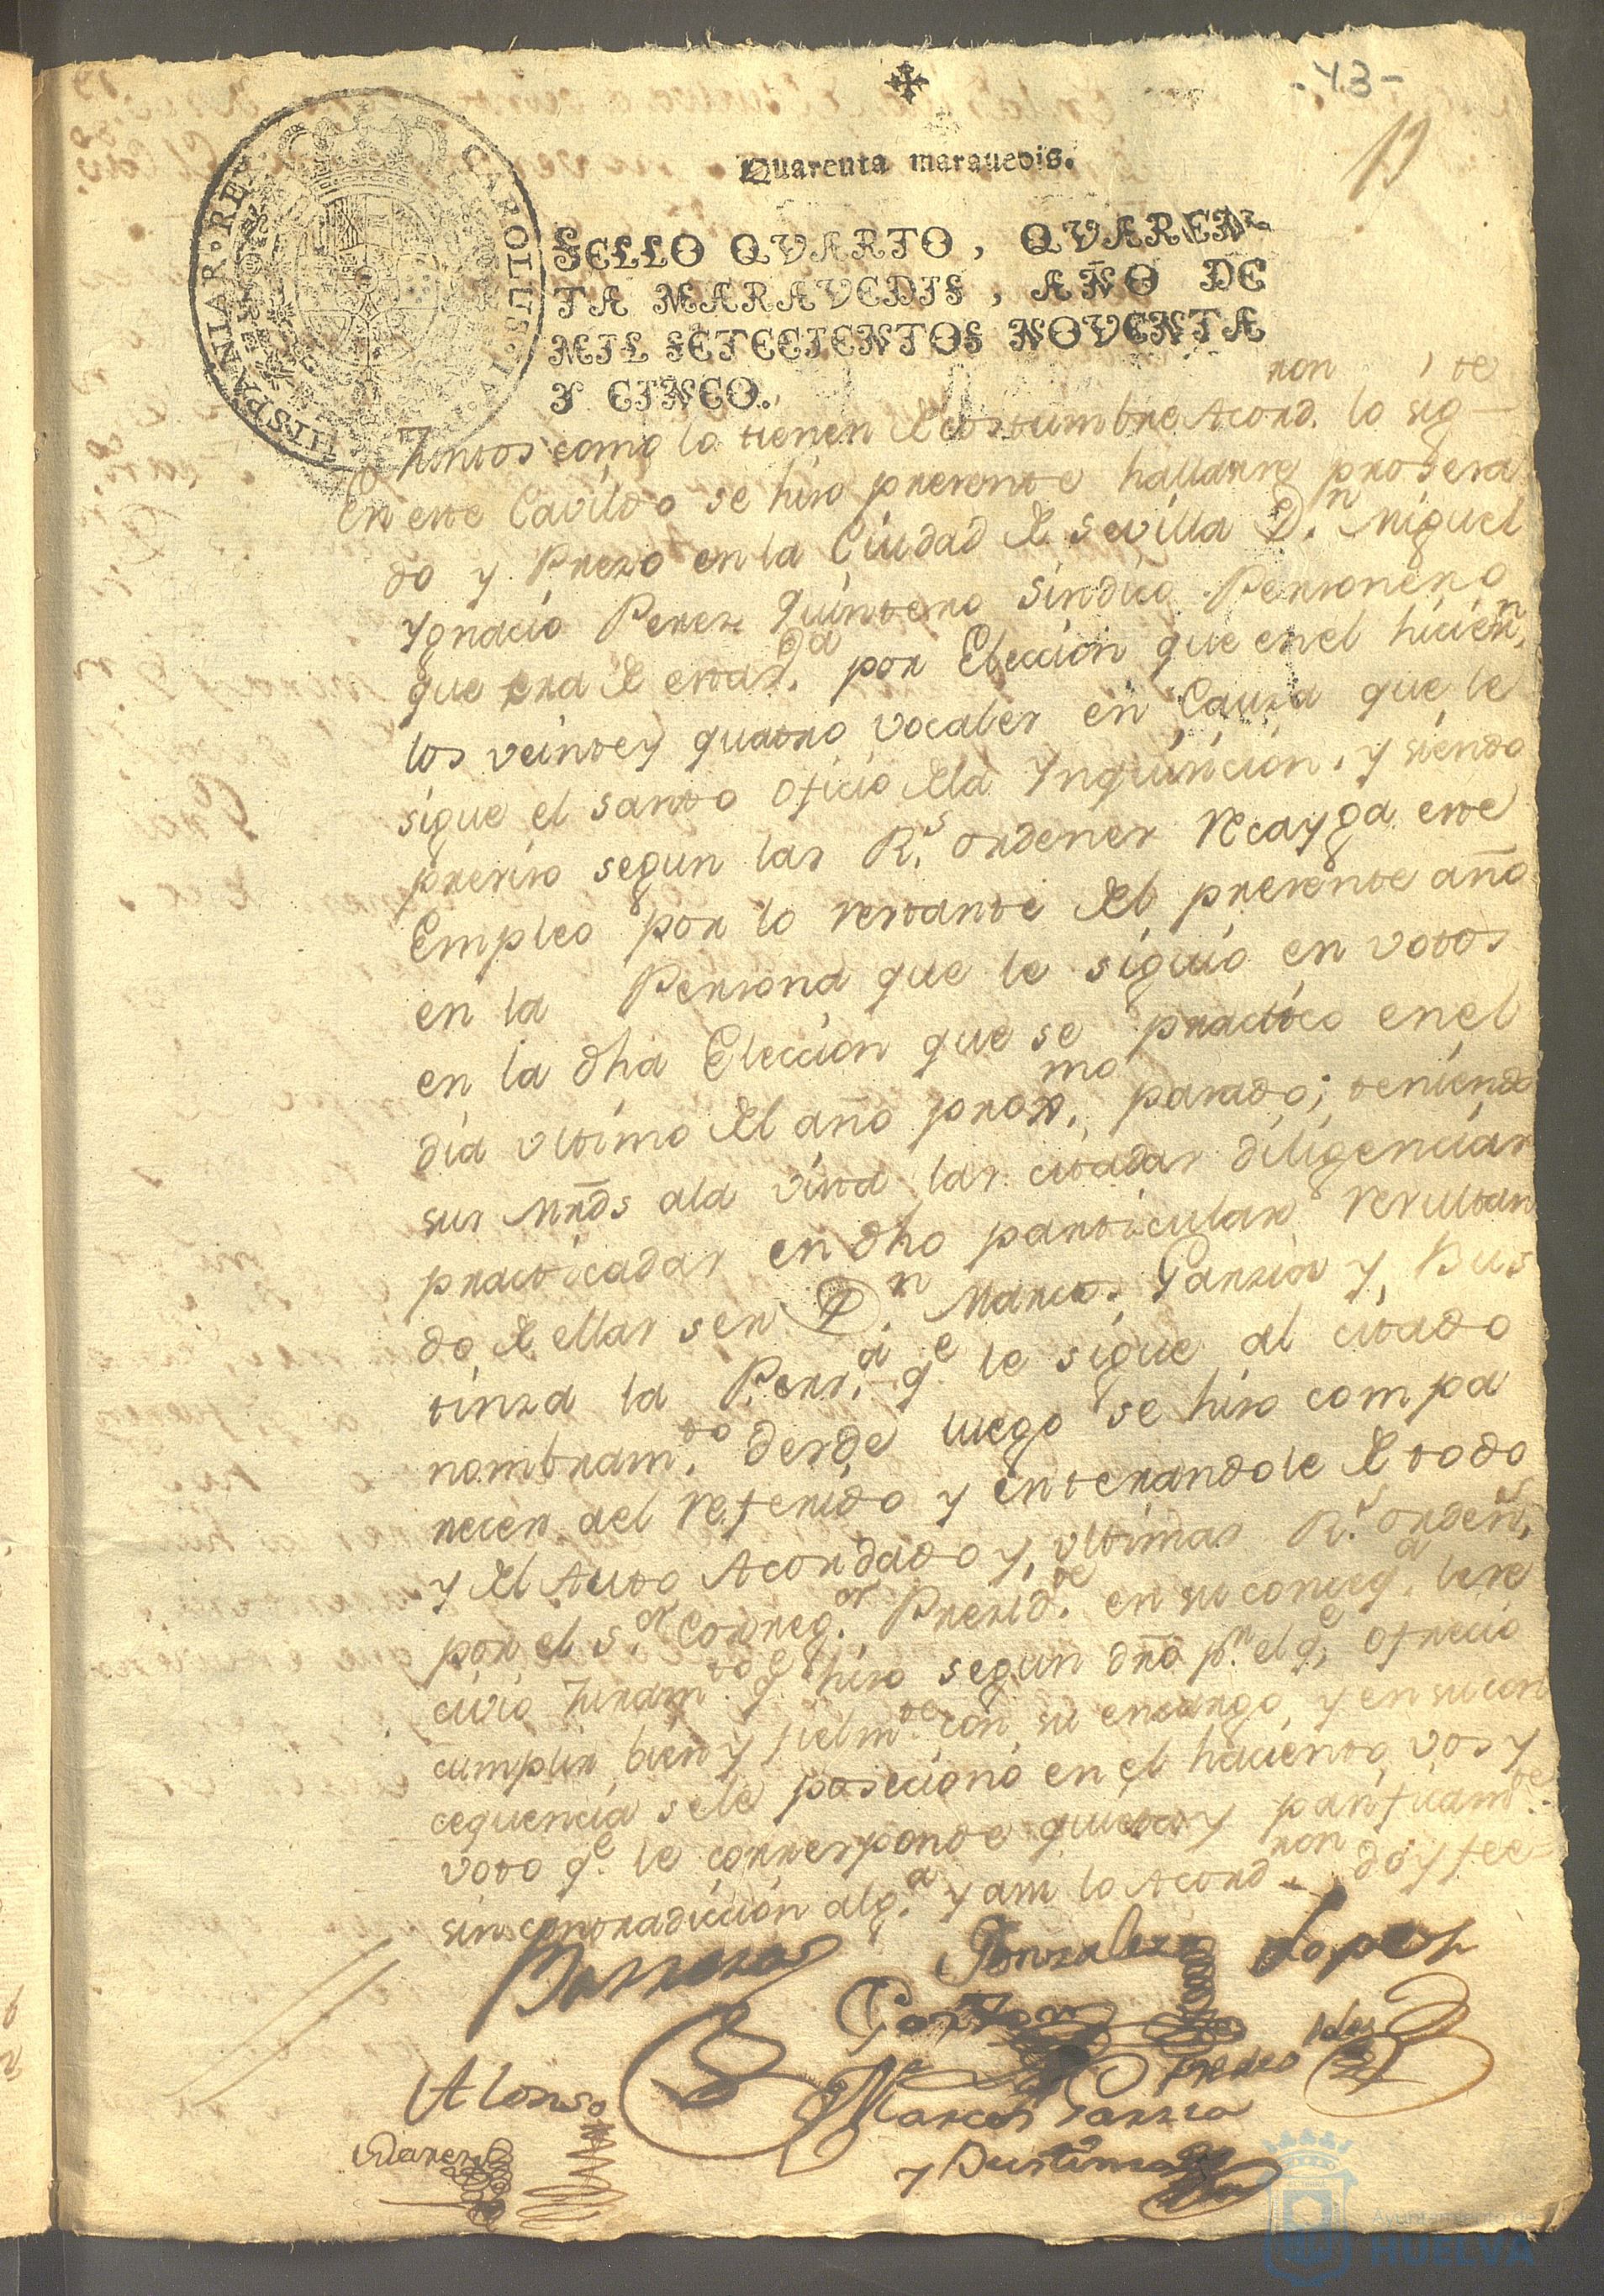 -43-
19
Quarenta marauedis.
CAROLUS IV
HISPANIAR. REX
SELLO QVARTO, QVAREN-
TA MARAVEDIS, AÑO DE
MIL SETECIENTOS NOVENTA
Y CINCO.
Juntos como lo tienen de costumbre Acord.ron lo sigte
En este Cavildo se hiso presente hallarse prosesa
do y Preso en la Ciudad de Sevilla D.n Miguel
Ygnacio Peres Quintero Sindico Personero
que era de esta v.da por Eleccion que en el hicien.n
los veinte y quatro vocales en Causa que le
sigue el santo oficio de la Ynquisicion, y siendo
presiso segun las R.s ordenes recayga este
Empleo por lo restante del presente año
en la Persona que le siguio en votos
en la dha Eleccion que se practico en el
dia ultimo del año prox.mo pasado; teniendo
sus Mrds a la vista las citadas diligencias
practicadas en dho particular resultan
do de ellas ser D.n Marcos Garsia y Bus
tinza la Pers.a q.e le sigue al citado
nombram.to desde luego se hiso compa
recer al referido y enterandole de todo
y del Auto Acordado y ultimas R.s orden.s
por el S.or Correg.or Presid.te en su conseq.a le re
civio Juram.to q.e hiso segun dro p.r el q.e ofrecio
cumplir bien y fielm.te con su encargo, y en su con
cequencia se le posecionó en el haciento, vos y
voto q.e le corresponde quieta y pasificam.te
sin contradiccion alg.a y assi lo Acord.ron doy fee=
Barreras Gonzalez Lopez
Garzon
Alonso Marcos Garzia
y Bustinza
Ayuntamiento de
HUELVA